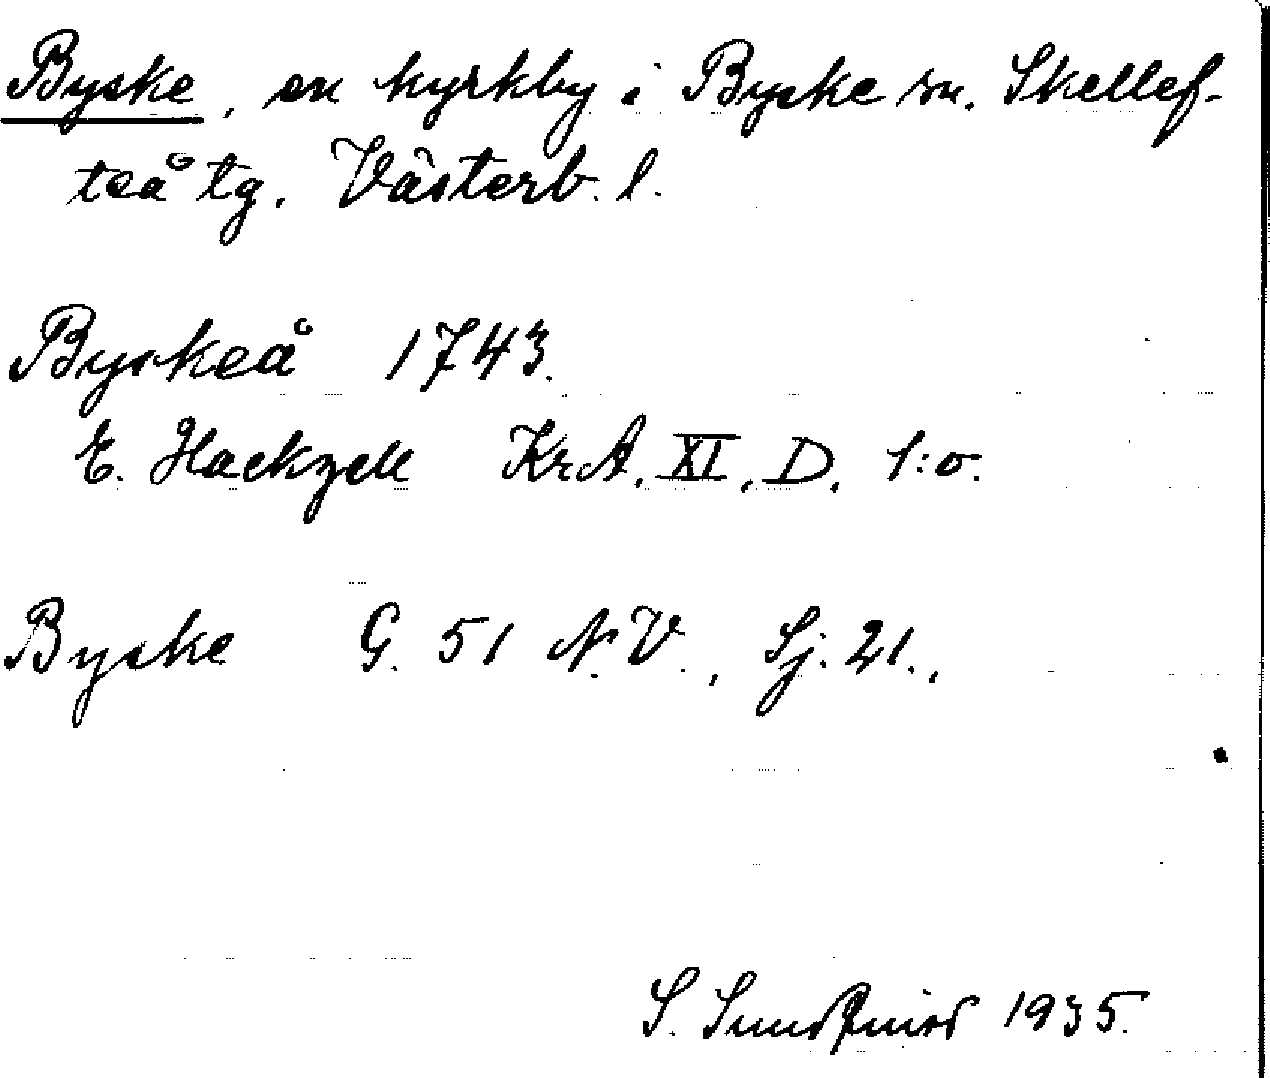 Byske, en kyrkby i Byske sn. Skellef-
teå tg. Västerb. l.
Byskeå 1743.
E. Hackzell KrA. XI. D. 1:o.
Byske G. 51 N.V., Sj. 21.,
S. Sundqvist 1935.